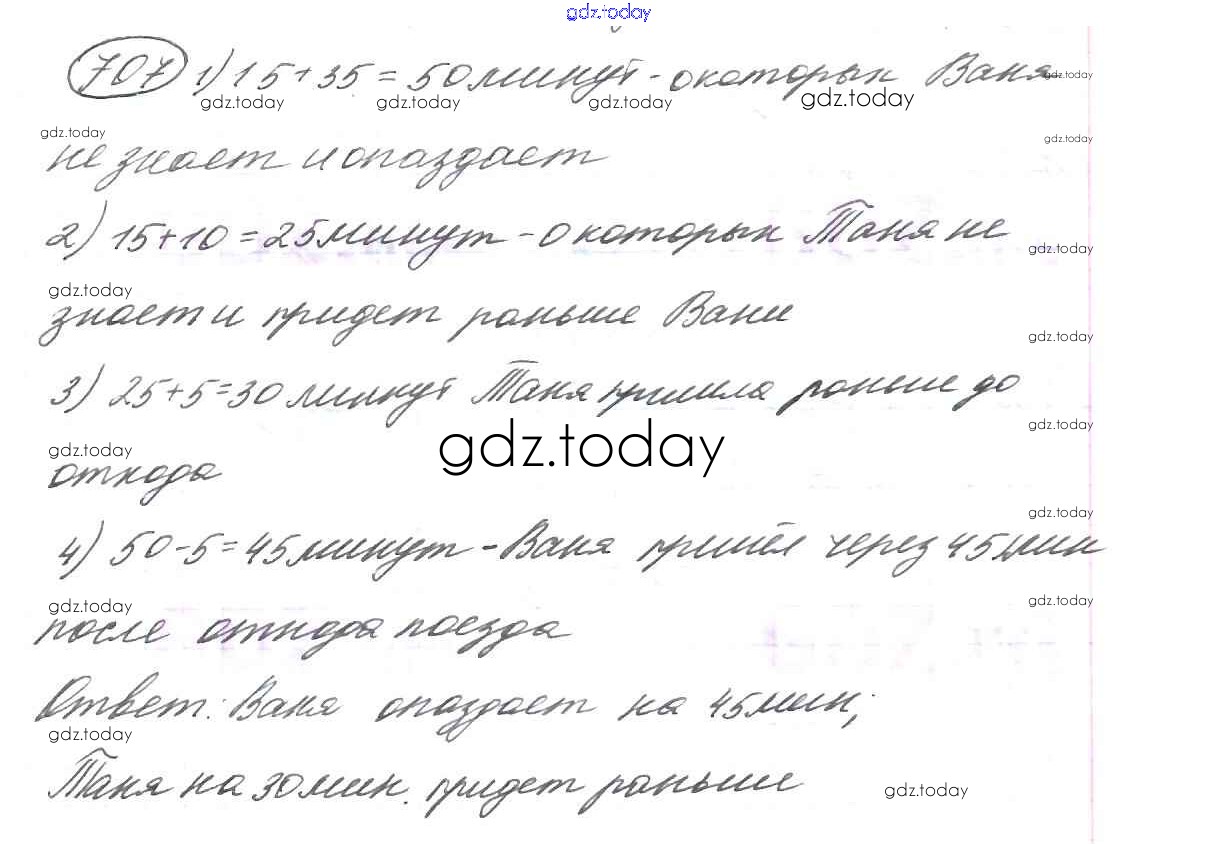 gdz.today
707 1) 15+35=50 минут - о которых Ваня
gdz.today gdz.today gdz.today gdz.today gdz.today
gdz.today gdz.today
не знает и опаздает
2) 15+10=25 минут - о которых Таня не
gdz.today
gdz.today
знает и придет раньше Вани
gdz.today
3) 25+5=30 минут Таня пришла раньше до
gdz.today
gdz.today
gdz.today
отхода
gdz.today
4) 50-5=45 минут - Ваня пришёл через 45 мин
gdz.today
gdz.today
после отхода поезда
Ответ: Ваня опаздает на 45 мин;
gdz.today
Таня на 30 мин. придет раньше
gdz.today